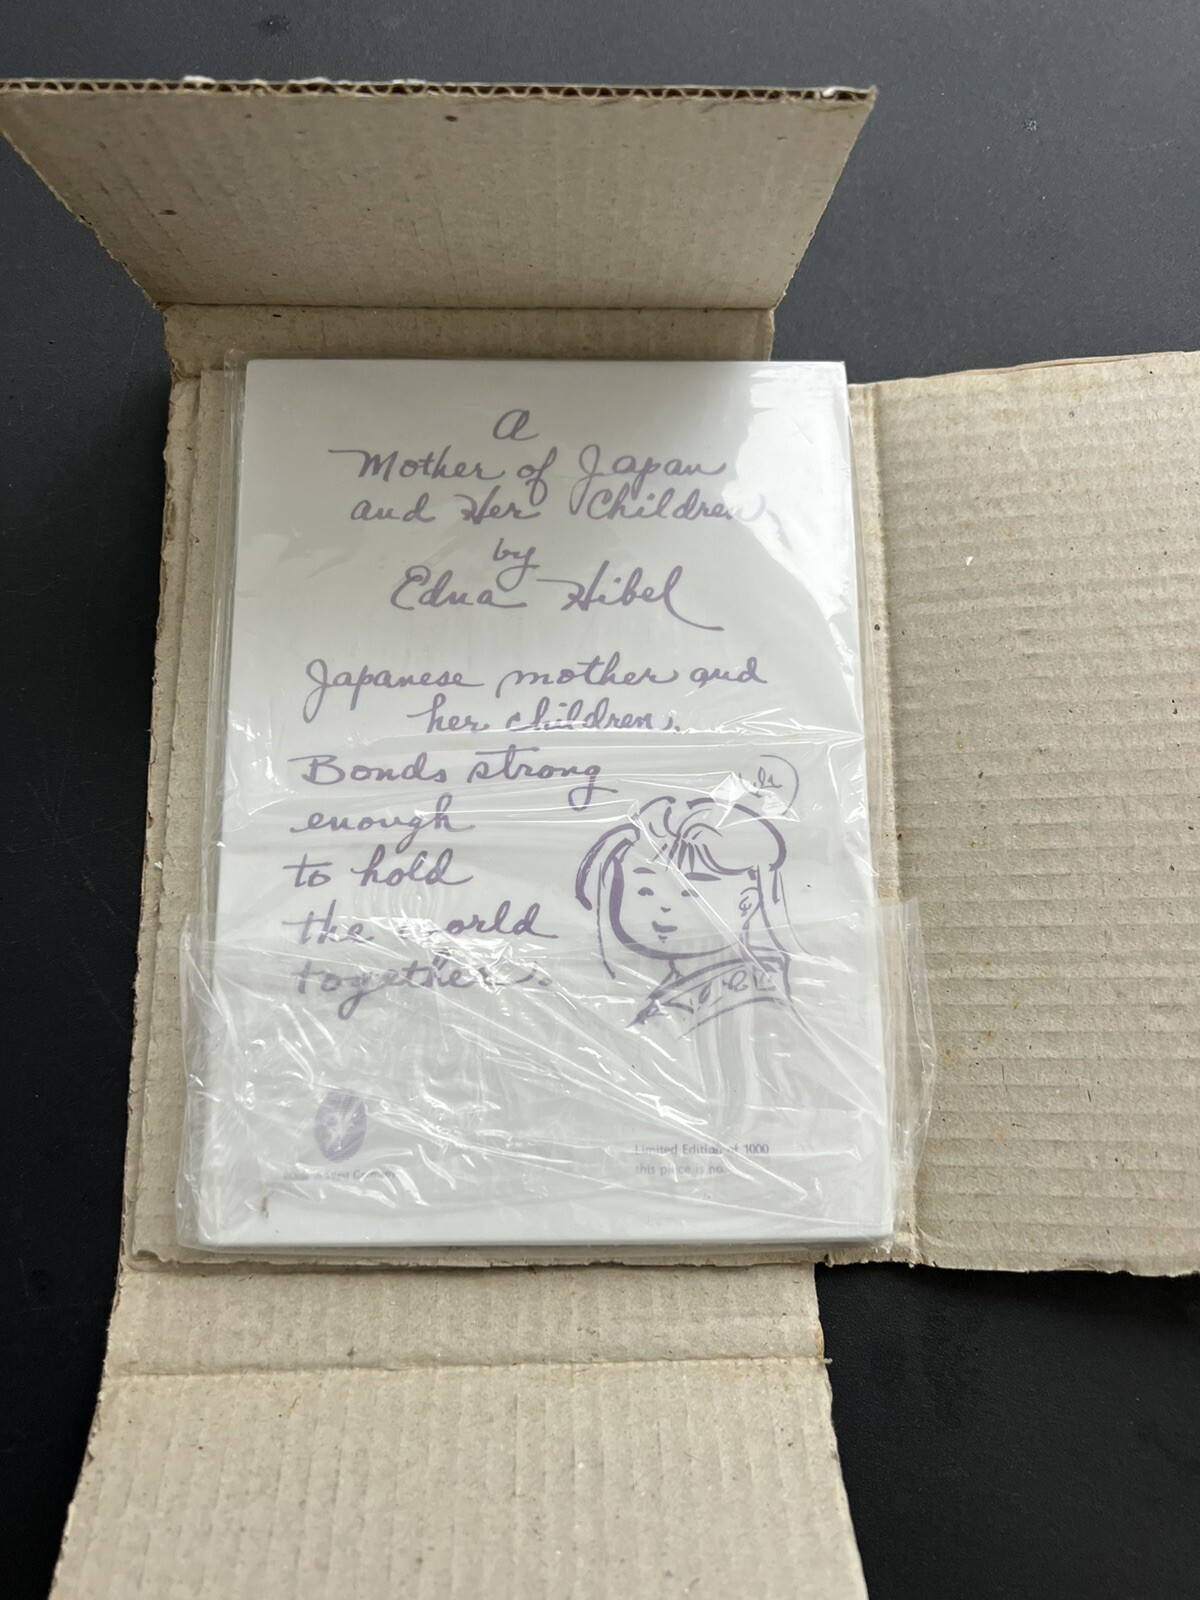 a
Mother of Japan
and Her Children
by
Edna Hibel
Japanese mother and
her children.
Bonds strong
enough
to hold
the world
together.
Limited Edition of 1000
this piece is no.